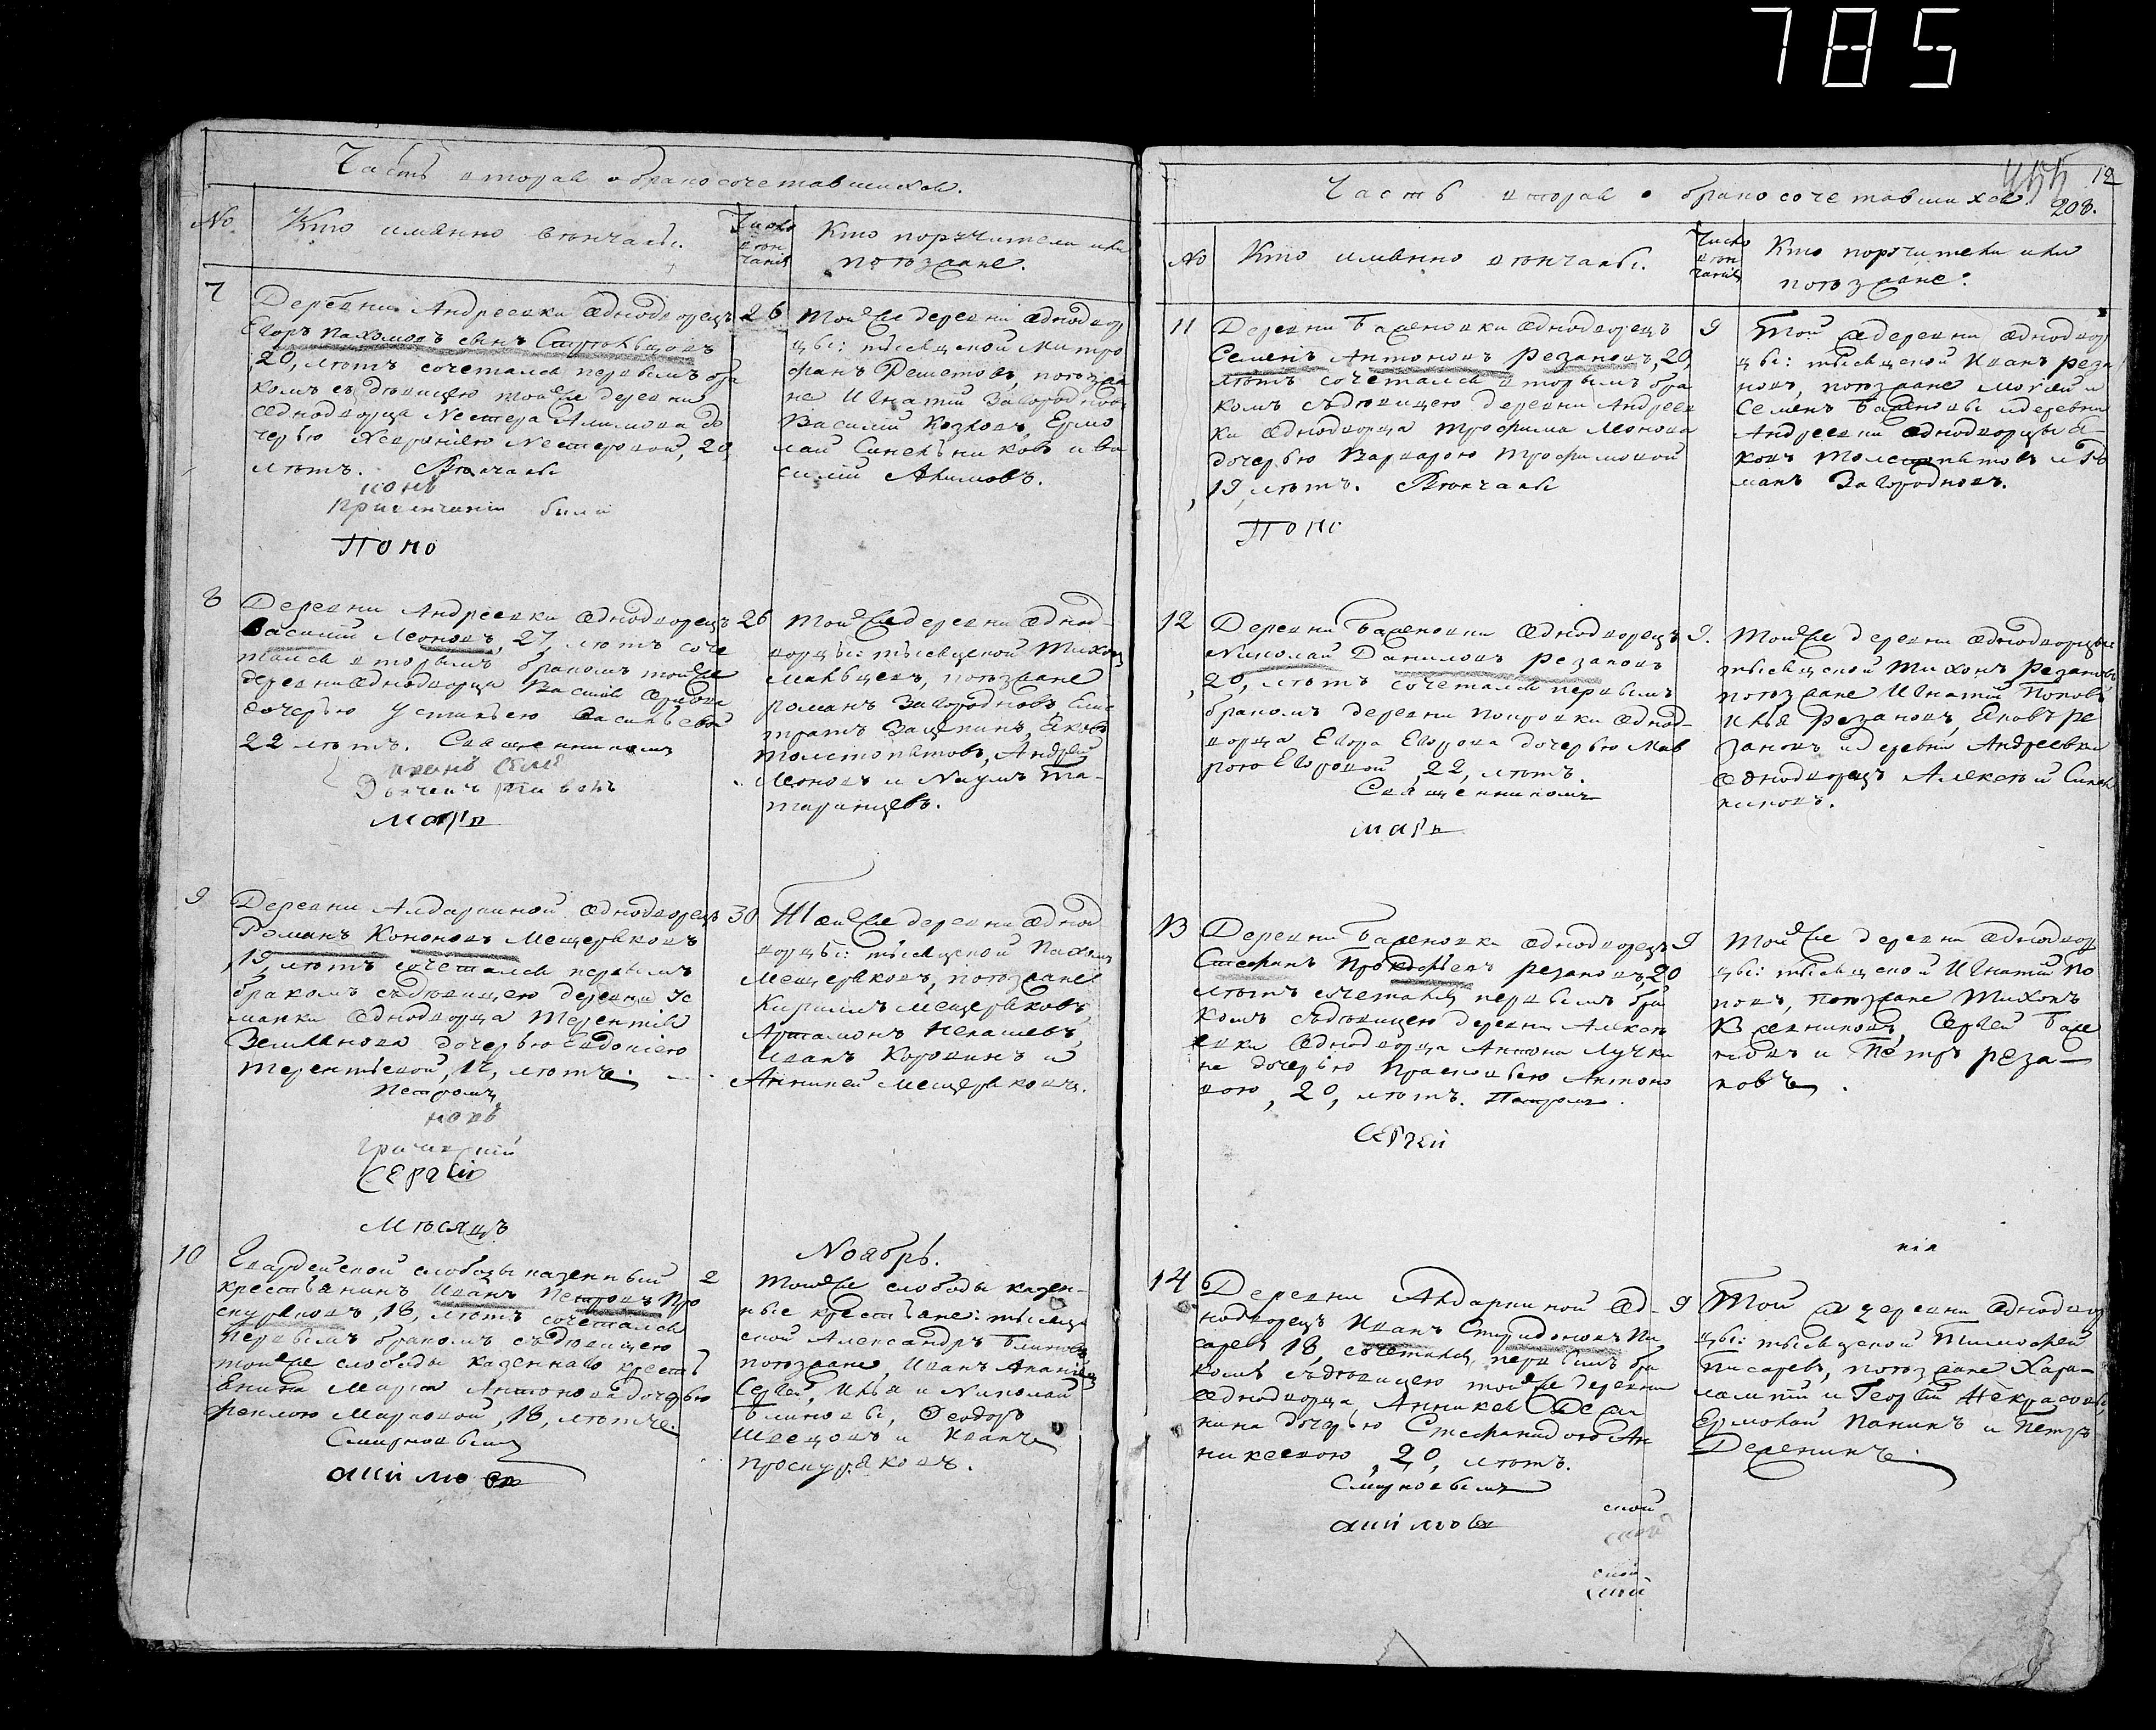 785
Часть вторая о бракосочетавшихся.
№
Кто имянно венчаны.
Число вѣн чанія
Кто поручители или
поѣзжане.
7
Деревни Андреевки однодворецъ
26
Егоръ Пахомовъ сынъ
20, лѣтъ сочетался первымъ бра
комъ съ дѣвицею тойже деревни
однодворца Нестера Акимова до
черью Нестеровой, 20,
лѣтъ. Вѣнчаны
Тойже деревни однодвор
цы: тысяцской Митро
фанъ Решетовъ, поѣзжа
не Игнатій Загороднов
Василій Козловъ, Ермо
лай Синельниковъ и Ва
силій Акимовъ.
были
Поно
8
Деревни Андреевки однодворецъ
26
Василій Леоновъ, 27, лѣтъ соче
тался вторымъ бракомъ тойже
деревни однодворца Василія
дочерью Устиньею Васильевой
22 лѣтъ. Священникомъ
Марк
тойже деревни однод-
ворцы: тысяцской Тихонъ
поѣзжане
романъ Загородновъ, Елис
тратъ Защепинъ, Яковъ
толстопятовъ, Андрей
Леоновъ и Наумъ Та-
таринцевъ.
9
Деревни Алдаркиной однодворецъ
30
Романъ Кононовъ Мещеряковъ
19, лѣтъ сочетался первымъ
бракомъ съ дѣвицею деревни Ус
манки однодворца Терентія
Землянова дочерью
терентьевой, 17, лѣтъ.
Петромъ
Сергій
Тойже деревни однод
ворцы: тысяцской Пахомъ
Мещеряковъ, поѣзжане
Кирилъ Мещеряковъ,
Артамонъ Некашевъ,
Иванъ Коровинъ и
Аникей Мещеряковъ.
Мѣсяцъ
Ноябрь.
10
Гвардейской слободы казенный
2
крестьянинъ Иванъ Петровъ Про
скуряковъ, 18, лѣтъ сочетался
первымъ бракомъ съ дѣвицею
тойже слободы казеннаго кресть
янина Марка Антонова дочерью
феклою Марковой, 18, лѣтъ.
Смирновымъ
Тойже слободы казен-
ные крестьяне: тысяц
ской Александръ Блиновъ
поѣзжане, Иванъ
Сергей, Илья и Николай
Блиновы, Феодоръ
Швецовъ и Иванъ
проскуряковъ.
Часть вторая о бракосочетавшихся.
12
208.
№
Кто имянно вѣнчаны.
Число вѣн чанія
Кто поручители или
поѣзжане:
11
Деревни Баженовки однодворецъ
9
Семенъ Антоновъ Резановъ, 20,
лѣтъ сочетался вторымъ бра
комъ съ дѣвицею деревни Андреев
ки однодворца трофима Леонова
дочерью Варварою трофимовой
19, лѣтъ. Вѣнчаны
Поно
Той ж деревни однодвор
цы: тысяцской Иванъ реза
новъ, поѣзжане Мокей и
Семенъ Баженовы и деревни
Андреевки однодворцы Я-
ковъ толстопятовъ и Ро
манъ Загородновъ.
12
Деревни Баженовки однодворецъ
9.
Николай Даниловъ резановъ
20, лѣтъ сочетался первымъ
бракомъ деревни Покровки однод-
ворца Егора Егорова дочерью Мав
рою Егоровой, 22, лѣтъ.
Священникомъ
Марк
Тойже деревни однодворцы
тысяцской тихонъ резановъ
поѣзжане Игнатій Поповъ
илья резановъ, Яковъ ре
зановъ и деревни Андреевки
однодворецъ Алексѣй Синель
никовъ.
13
Деревни Баженовки однодворецъ
9
Стефанъ Прокофьевъ резановъ, 20
лѣтъ сочетался первымъ бра
комъ съ дѣвицею деревни Алексе
евки однодворца Антона Лучки
на дочерью Прасковьею Антоно
вою, 20, лѣтъ. Петромъ.
Сергей
Тойже деревни однодвор
цы: тысяцской Игнатій По
повъ, поѣзжане Тихонъ
Сергей Баже
новъ и Петръ реза-
новъ.
нія
14
Деревни Алдаркиной од-
9
нодворецъ Иванъ Спиридоновъ Пи
саревъ 18, сочетался первымъ бра
комъ съ дѣвицею тойже деревни
однодворца Анникея
нина дочерью Стефанидою Ан
никеевою, 20, лѣтъ.
Смирновымъ
Той ж деревни однодвор
цы: тысяцской Тимофей
Писаревъ, поѣзжане Хара-
лампій и Георгій Некрасовы,
Ермолай Панинъ и Петръ
Деленинъ.
ской
ской
ской